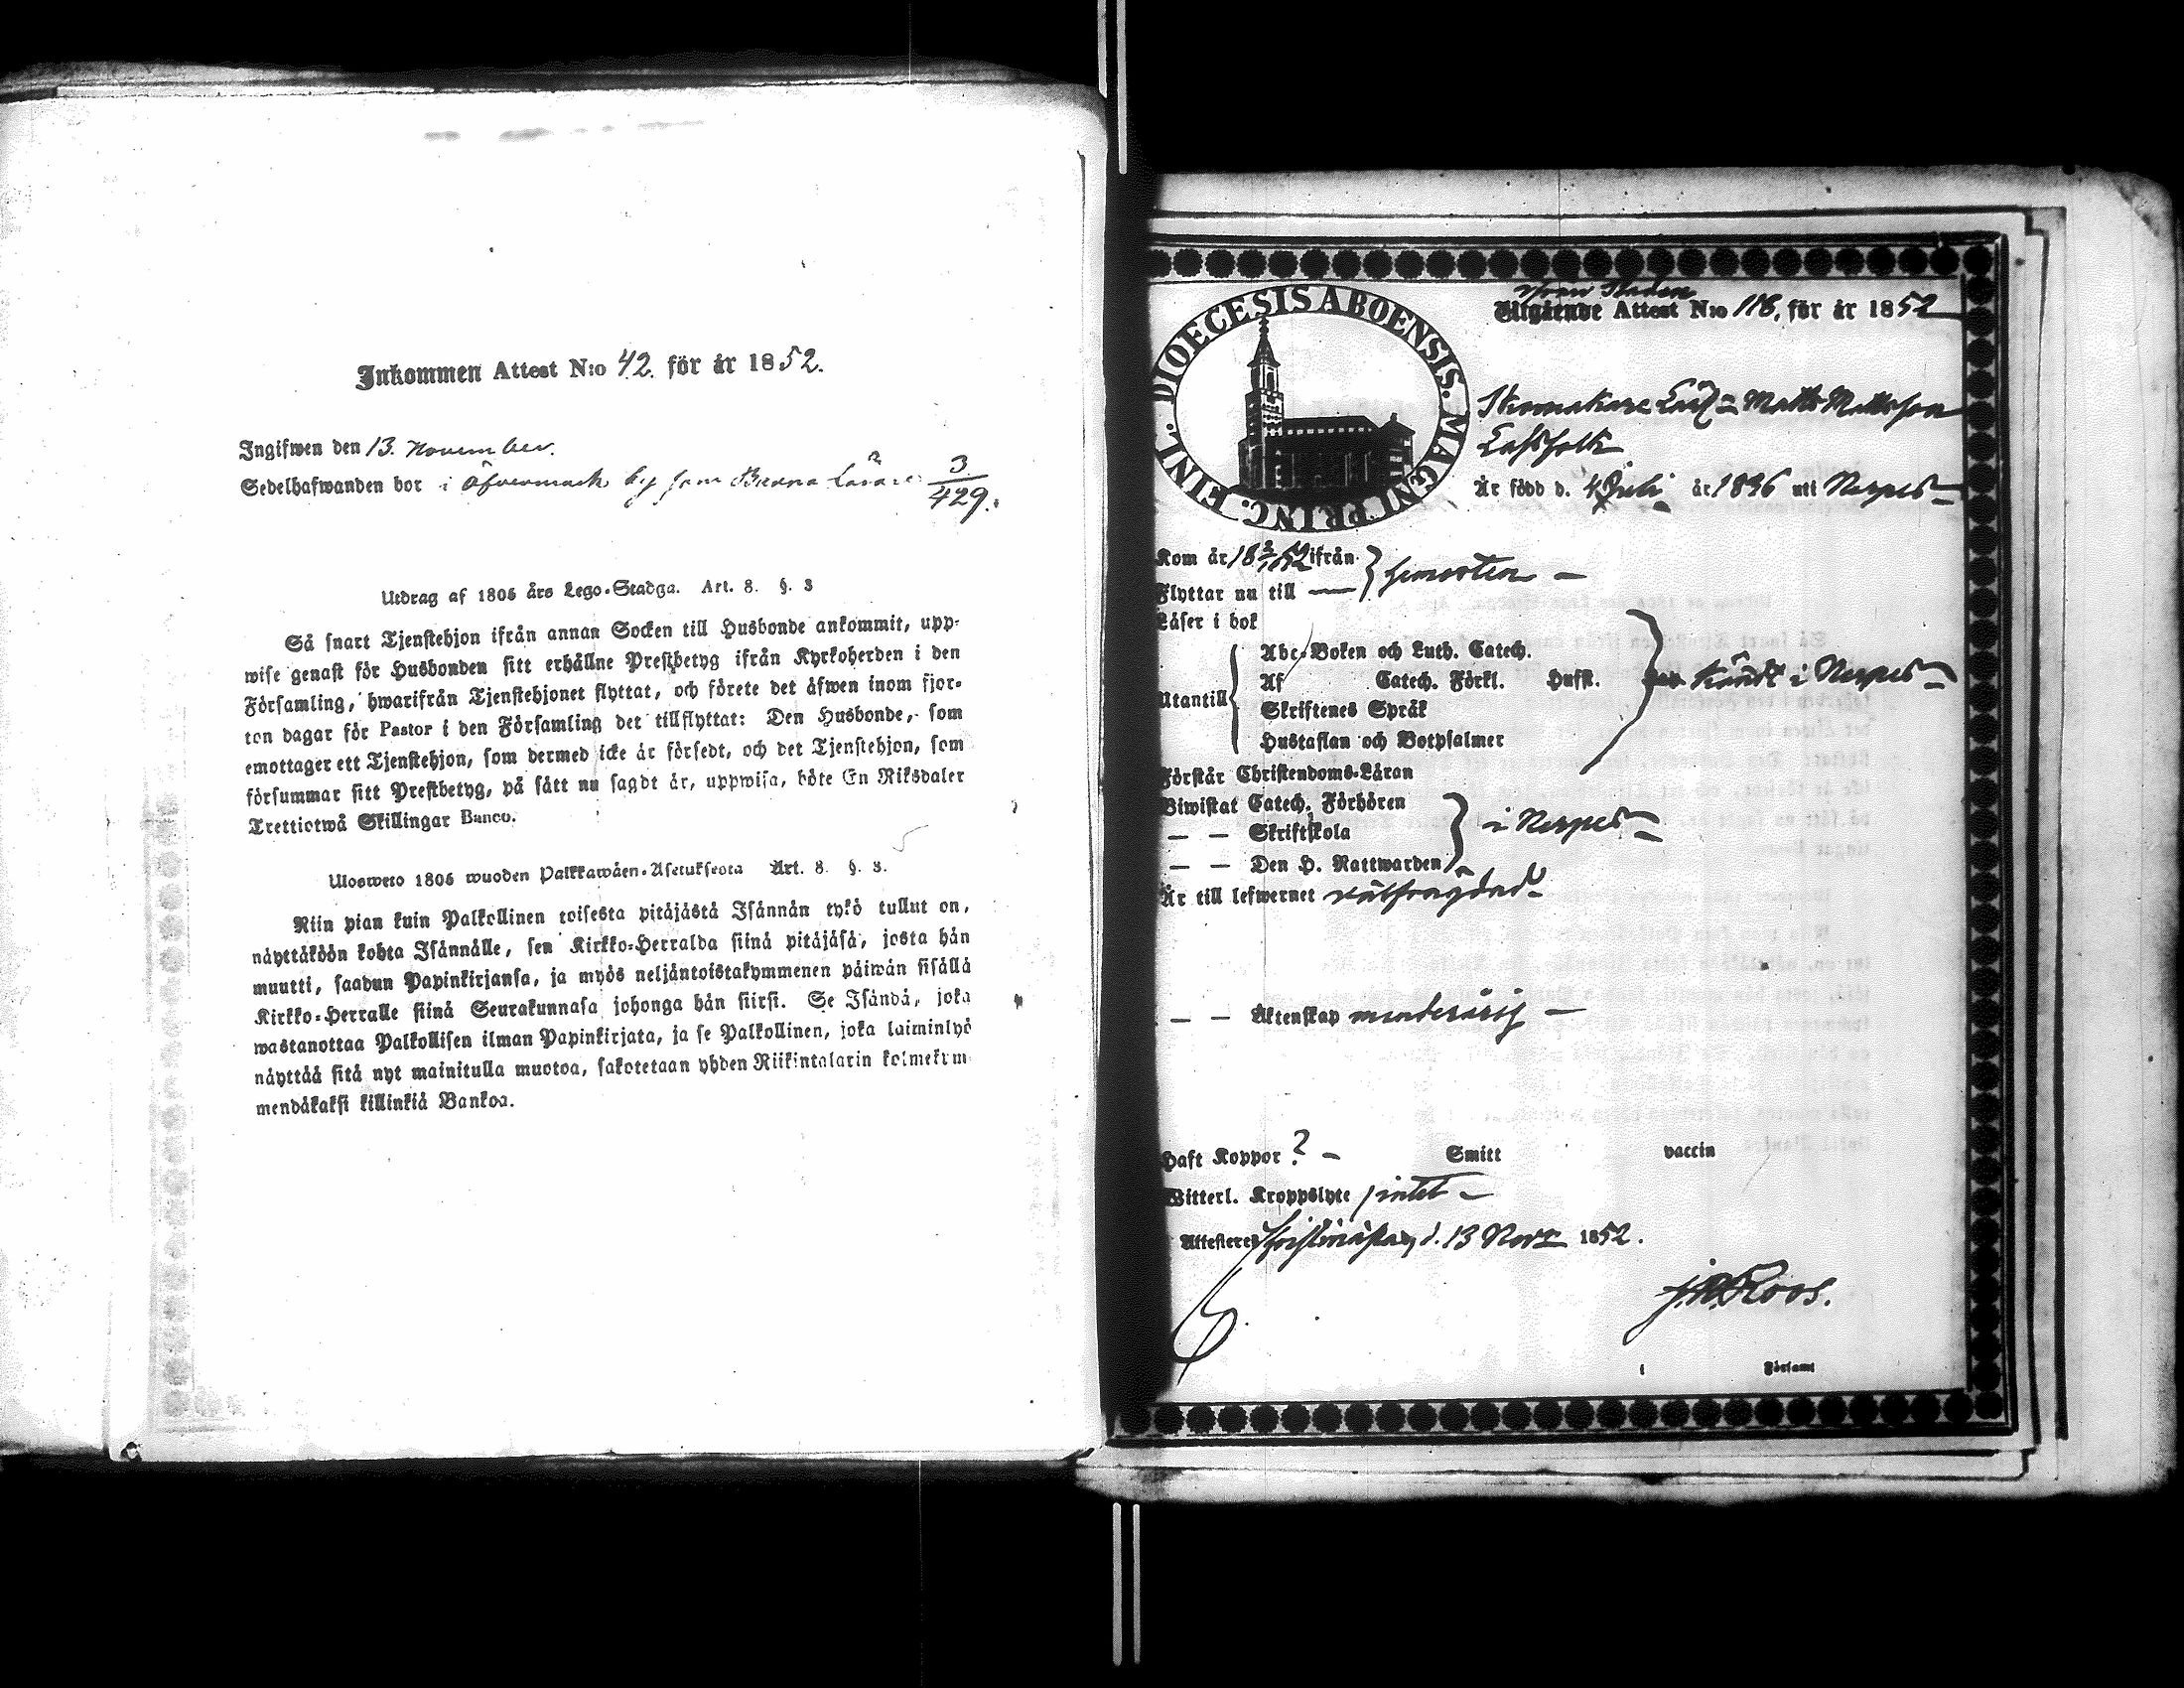 Inkommen Attest N:o 42. för år 1852.
Ingifwen den 13. November.
Sedelhafwanden bor i Öfvermark by som Barna Lärare 3/429.
Utdrag af 1805 års Lego-Stadga. Art. 8. §. 3
Så snart Tjenstehjon ifrån annan Socken till Husbonde ankommit, upp-
wise genast för Husbonden sitt erhållne Prestbetyg ifrån Kyrkoherden i den
Församling, hwarifrån Tjenstehjonet flyttat, och förete det äfwen inom fjor-
ton dagar för Pastor i den Församling det tillflyttat: Den Husbonde, som
emottager ett Tjenstehjon, som dermed icke är försedt, och det Tjenstehjon, som
försummar sitt Prestbetyg, på sätt nu sagdt är, uppwisa, böte En Riksdaler
Trettiotwå Skillingar Banco.
Ulosweto 1805 wuoden Palkkawäen-Asetuksesta Art. 8. §. 3.
Niin pian kuin Palkollinen toisesta pitäjästä Isännän tykö tullut on,
näyttäköön kohta Isännälle, sen Kirkko-Herralda siinä pitäjäsä, josta hän
muutti, saadun Papinkirjansa, ja myös neljäntoistakymmenen päiwän sisällä
Kirkko-Herralle siinä Seurakunnasa johonga hän siirsi. Se Isändä, joka
wastanottaa Palkollisen ilman Papinkirjata, ja se Palkollinen, joka laiminlyö
näyttää sitä nyt mainitulla muotoa, sakotetaan yhden Riikintalarin kolmekym
mendäkaksi killinkiä Bankoa.
DIOECESIS ABOENSIS. MAGNI PRINC. FINL.
från Staden
Utgående Attest N:o 118, för år 1852
Skomakare Lärl. Matts Mattsson
Lassfolk
Är född d. 4 Juli år 1836 uti Nerpes
Kom år 18 52 ifrån
Flyttar nu till — hemorten —
Läser i bok
Utantill
Abc-Boken och Luth. Catech.
Af Catech. Förkl. Husst. känd i Nerpes
Skriftenes Språk
Hustaflan och Botpsalmer
Förstår Christendoms-Läran
Biwistat Catech. Förhören
— — Skriftskola i Nerpes
— — Den H. Nattwarden
Är till lefwernet välfrägdad
— — Äktenskap minderårig —
Haft Koppor ? — Smitt vaccin
Witterl. Kroppslyte intet —
Attesteres Christinestad, d. 13 Novr 1852.
J. W. Roos.
i Församl